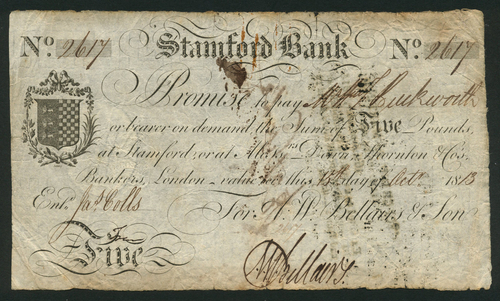 No. 2617 Stamford Bank No. 2617
I Promise to pay Mr. Duckworth
or bearer on demand the Sum of Five Pounds,
at Stamford, or at Mess.rs Down, Thornton & Cos.
Bankers, London value rec.d this day of Oct.r 1813
Ent.d Ja.s Colls For A. W. Bellaers & Son
Five
Bellaers.